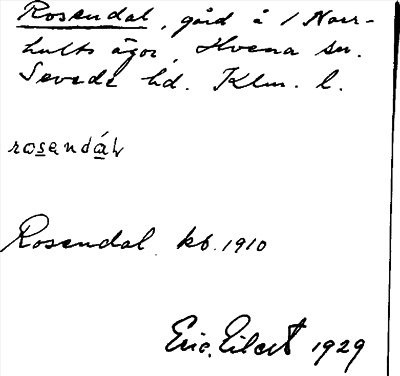 Rosendal, gård å 1 Norr-
hults ägor, Hvena sn.
Sevede hd. Klm. l.
rosendáL
Rosendal. kb. 1910
Eric Eilert 1929